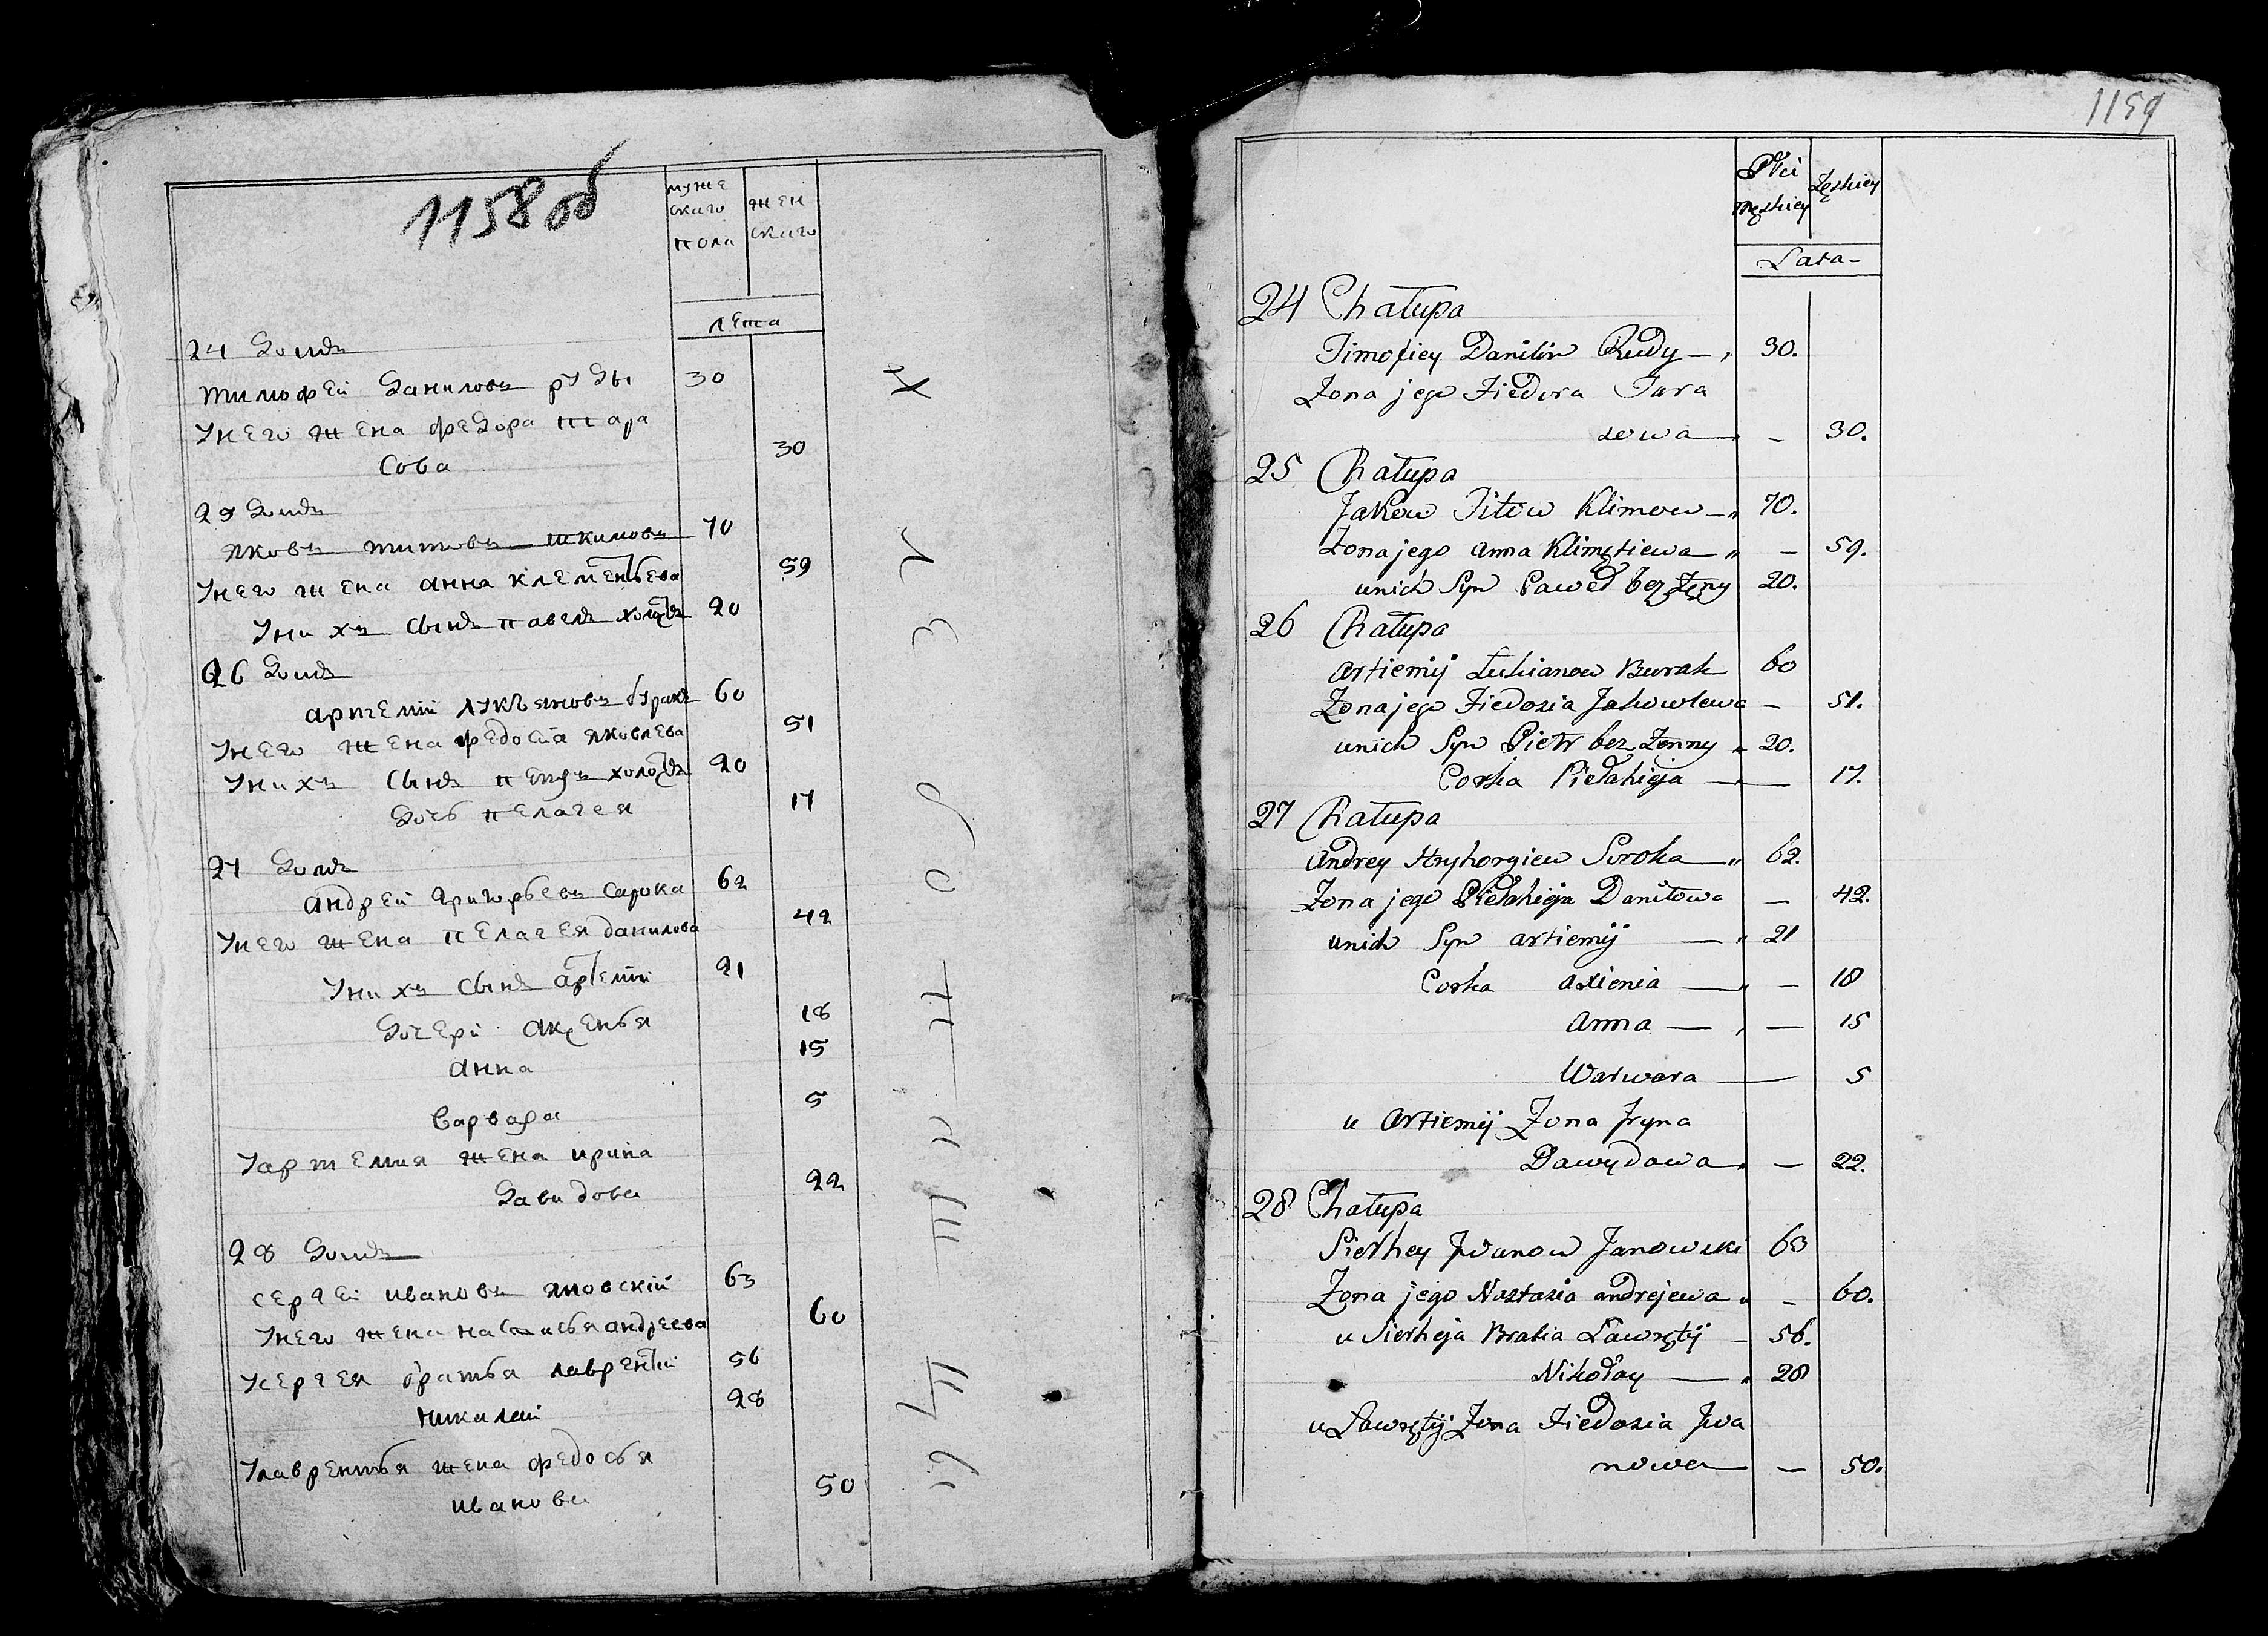 1158 об
муже
ского
пола
жен
ского
лета
24 домъ
тимофей даниловъ руды 30
унего жена федора тара
сова 30
25 домъ
яковъ титовъ 70
унего жена анна клементьева 59
унихъ сынъ павелъ холостъ 20
26 домъ
артемий лукъяновъ буракъ 60
унего жена федосия яковлева 51
унихъ сынъ петръ холостъ 20
дочь пелагея 17
27 домъ
андрей григорьевъ сарока 62
унего жена пелагея данилова 42
унихъ сынъ артемий 21
дочери аксенья 18
анна 15
варвара 5
уартемия жена ирина
давидова 22
28 домъ
сергей ивановъ яновский 63
унего жена настасья андреева 60
усергея братья лаврентий 56
николай 28
улаврентья жена федосья
иванова 50
1159
Płci
męskiey
Zęskiey
Lata
24 Chałupa
Timofiey Daniłów Rudy 30.
Zona jego Fiedora Tara
sowa 30.
25 Chałupa
Jakow Titow Klimow 70.
Zona jego Anna Klimętiewa 59.
unich Syn Paweł bez Żeny 20.
26 Chałupa
Artiemij Łukianow Burak 60
Zona jego Fiedosia Jakowlewa 51.
unich Syn Pietr bez Zenny 20.
Corka Piełahieja 17.
27 Chałupa
Andrey Hryhorgiew Soroka 62.
Zona jego Piełahieja Daniłowa 42.
unich Syn Artiemij 21
Corka Axienia 18
Anna 15
Warwara 5
u Artiemij Zona Jryna
Dawydowa 22.
28 Chałupa
Sierhey Jwanow Janowski 63
Zona jego Nastasia Andrejewa 60.
u Sierheja Bratia Ławrętij 56.
Nikołay 28
u Ławrętij Zona Fiedosia Jwa
nowa 50.